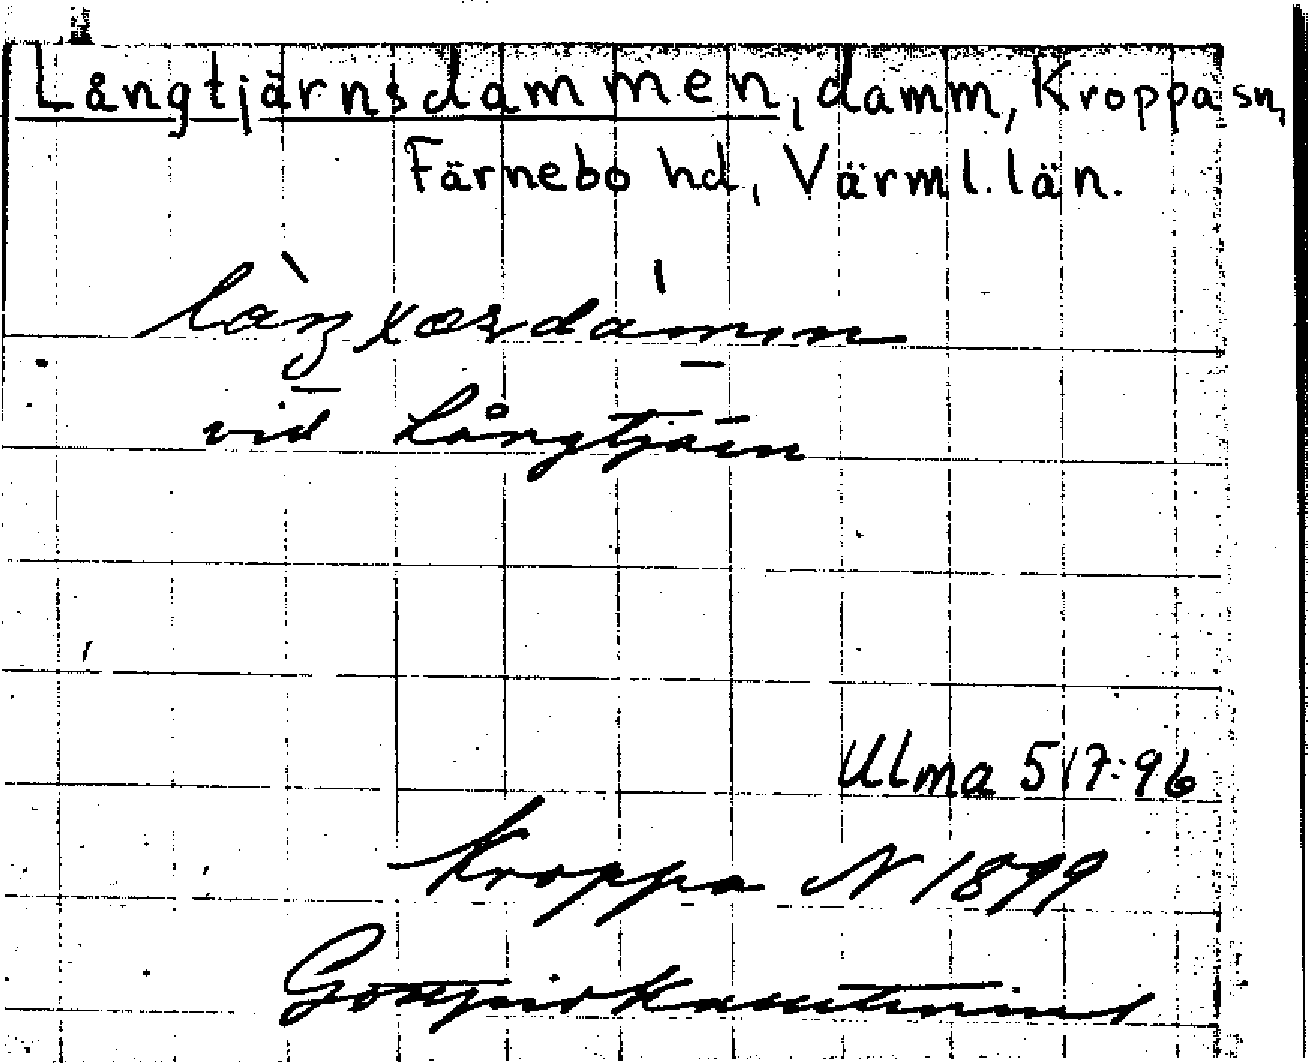 Långtjärnsdammen, damm, Kroppa sn,
Färnebo hd, Värml. län.
vid Långtjärn
Ulma 517:96
Kroppa N 1899